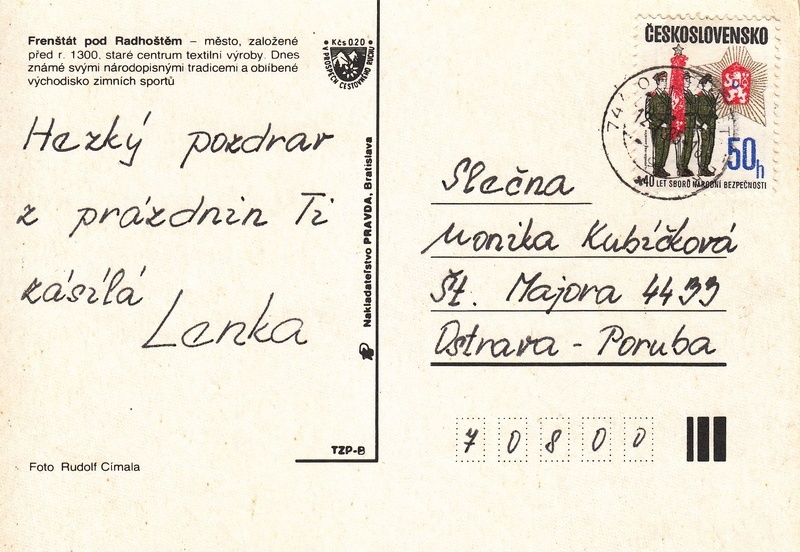 Frenštát pod Radhoštěm – město, založené
před r. 1300, staré centrum textilní výroby. Dnes
známé svými národopisnými tradicemi a oblíbené
východisko zimních sportů
Kčs 0,20
PROSPĚCH CESTOVNÉHO RUCHU
Hezký pozdrav
z prázdnin Ti
zásílá
Lenka
Foto Rudolf Címala
TZP-B
Nakladatelstvo PRAVDA, Bratislava
ČESKOSLOVENSKO
50h
40 LET SBORŮ NÁRODNÍ BEZPEČNOSTI
Slečna
Monika Kubíčková
Št. Majora 4433
Ostrava - Poruba
70800